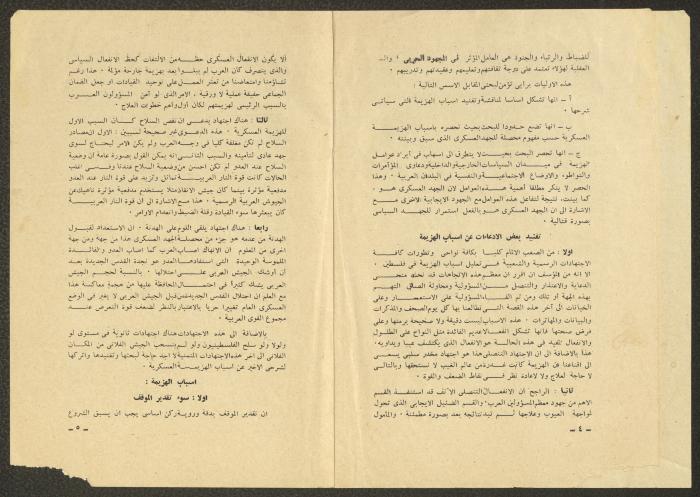 للضباط والرتباء والجنود هي العامل المؤثر في المجهود الحربي
العقلية لهؤلاء تعتمد على درجة ثقافتهم وتعليمهم وعقيدتهم وتدريبهم .
هذه الاوليات برأيي تؤمن لبحثي المقابل الاسس التالية :
أ ــ انها تشكل اساسا لمناقشة وتفنيد اسباب الهزيمة التي سيأتي
شرحها .
ب ــ انها تضع حدودا للبحث بحيث تحصره باسباب الهزيمة
العسكرية حسب مفهوم محصلة للجهد العسكري الذي سبق وبينته .
ج ــ انها تحصر البحث بحيث لا يتطرق الى اسهاب في ايراد عوامل
الهزيمة في ميدان السياسات الخارجية والداخلية ودعاوي المؤامرات
والتواطوء والاوضاع الاجتماعية والنفسية في البلدان العربية . وهذا
الحصر لا ينكر مطلقا اهمية هذه العوامل لان الجهد العسكري هو ،
كما بينت، نتيجة لتفاعل هذه العوامل مع الجهود الايجابية الاخرى مع
الاشارة الى ان الجهد العسكري هو بالفعل استمرار للجهد السياسي
بصورة قتالية .
تفنيد بعض الادعاءات عن اسباب الهزيمة
اولا : من الصعب الالمام كليا بكافة نواحي وتطورات كافة
الاجتهادات الرسمية والشعبية في تعليل اسباب الهزيمة في فلسطين .
الا انه من المؤسف ان اقرر ان معظم هذه الاتجاهات قد نحت منحى
الدعاية والاعتذار والتنصل من المسؤولية ومحاولة الصاق التهم
بهذه الجهة او تلك ومن ثم القاء المسؤولية على الاستعمار وعلى
الخيانات الى آخر هذه القصة التي تطالعنا بها كل يوم الصحف والمذكرات
والبيانات والمهاترات . هذه الاسباب ليست دقيقة ولا صحيحة برمتها وعلى
فرض صحتها فانها تشكل انفعالا عديم الفائدة مثل النواح على الطلول
والانفعال المفيد في هذه الحالة هو الانفعال الذي يكتشف عيبا ويداويه .
هذا بالاضافة الى ان الاجتهاد التنصلي هذا هو اجتهاد مخدر سلبي يسعى
الى اقناعنا بان الهزيمة كانت قدرا من عالم الغيب لا نستحقها وبالتالي
لا حاجة لعلاج ولا لاعادة نظر في نقاط الضعف والقوة .
ثانيا : الراجح ان الانفعال التنصلي الآنف قد استنفد القسم
الاهم من جهود معظم المسؤولين العرب . والقسم الضئيل الايجابي الذي تحول
لمواجهة العيوب وعلاجها لم تبد نتائجه بعد بصورة مطمئنة . والمأمول
ــ ٤ ــ
ألا يكون الانفعال العسكري حظه من الالتفات كحظ الانفعال السياسي
والذي يتصرف كان العرب لم يبتلوا بعد بهزيمة جارحة مؤلمة . هذا رغم
تشاؤمنا وامتعاضنا من تعثر العمل على توحيد القيادات او جعل الضمان
الجماعي حقيقة عملية لا ورقية ، الامر الذي لو آمن المسؤولون العرب
بالسبب الرئيسي لهزيمتهم لكان اول واهم خطوات العلاج .
ثالثا : هناك اجتهاد يدعي ان نقص السلاح كان السبب الاول
للهزيمة العسكرية . هذه الدعوى غير صحيحة لسببين : الاول ان مصادر
السلاح لم تكن مغلقة كليا في وجه العرب ولم يكن الامر ليحتاج لسوى
جهد عادي لتأمينه والسبب الثاني انه يمكن القول بصورة عامة ان وضعية
السلاح عند العدو لم تكن احسن من وضعية السلاح عندنا وفي اغلب
الحالات كانت قوة النار العربية تماثل وتزيد على قوة النار عند العدو
مدفعية مؤثرة بينما كان جيش الانقاذ مثلا يستخدم مدفعية مؤثرة ناهيك عن
الجيوش العربية الرسمية . هذا مع الاشارة الى ان قوة النار العربية
كان يبعثرها سوء القيادة وقلة الضبط وانعدام الاوامر .
رابعا : هناك اجتهاد يلقي اللوم على الهدنة . ان الاستعداد لقبول
الهدنة من عدمه هو جزء من محصلة الجهد العسكري هذا من جهة ومن جهة
اخرى من المعلوم ان الانهاك اصاب العرب كما اصاب العدو والفائدة
الملموسة الوحيدة التي استفادها العدو هو نجدة القدس الجديدة بعد
ان اوشك الجيش العربي على احتلالها . بالنسبة لحجم الجيش
العربي يشك كثيرا في احتمال المحافظة عليها من هجمة معاكسة هذا
مع العلم ان احتلال القدس الجديدة من قبل الجيش العربي لا يغير في الوضع
العسكري العام تغييرا حريا بالاعتبار بالنظر لضعف قوة التعرض عند
مجموع القوى العربية .
بالاضافة الى هذه الاجتهادات هناك اجتهادات ثانوية في مستوى لو
ولولا ولو سلح الفلسطينيون ولو لم ينسحب الجيش الفلاني من المكان
الفلاني الى آخر هذه الاجتهادات المتمنية لا اجد حاجة لبحثها وتفنيدها واتركها
لشرحي الاخير عن اسباب الهزيمة العسكرية .
اسباب الهزيمة :
اولا : سوء تقدير الموقف
ان تقدير الموقف بدقة وروية ركن اساسي يجب ان يسبق الشروع
ــ ٥ ــ